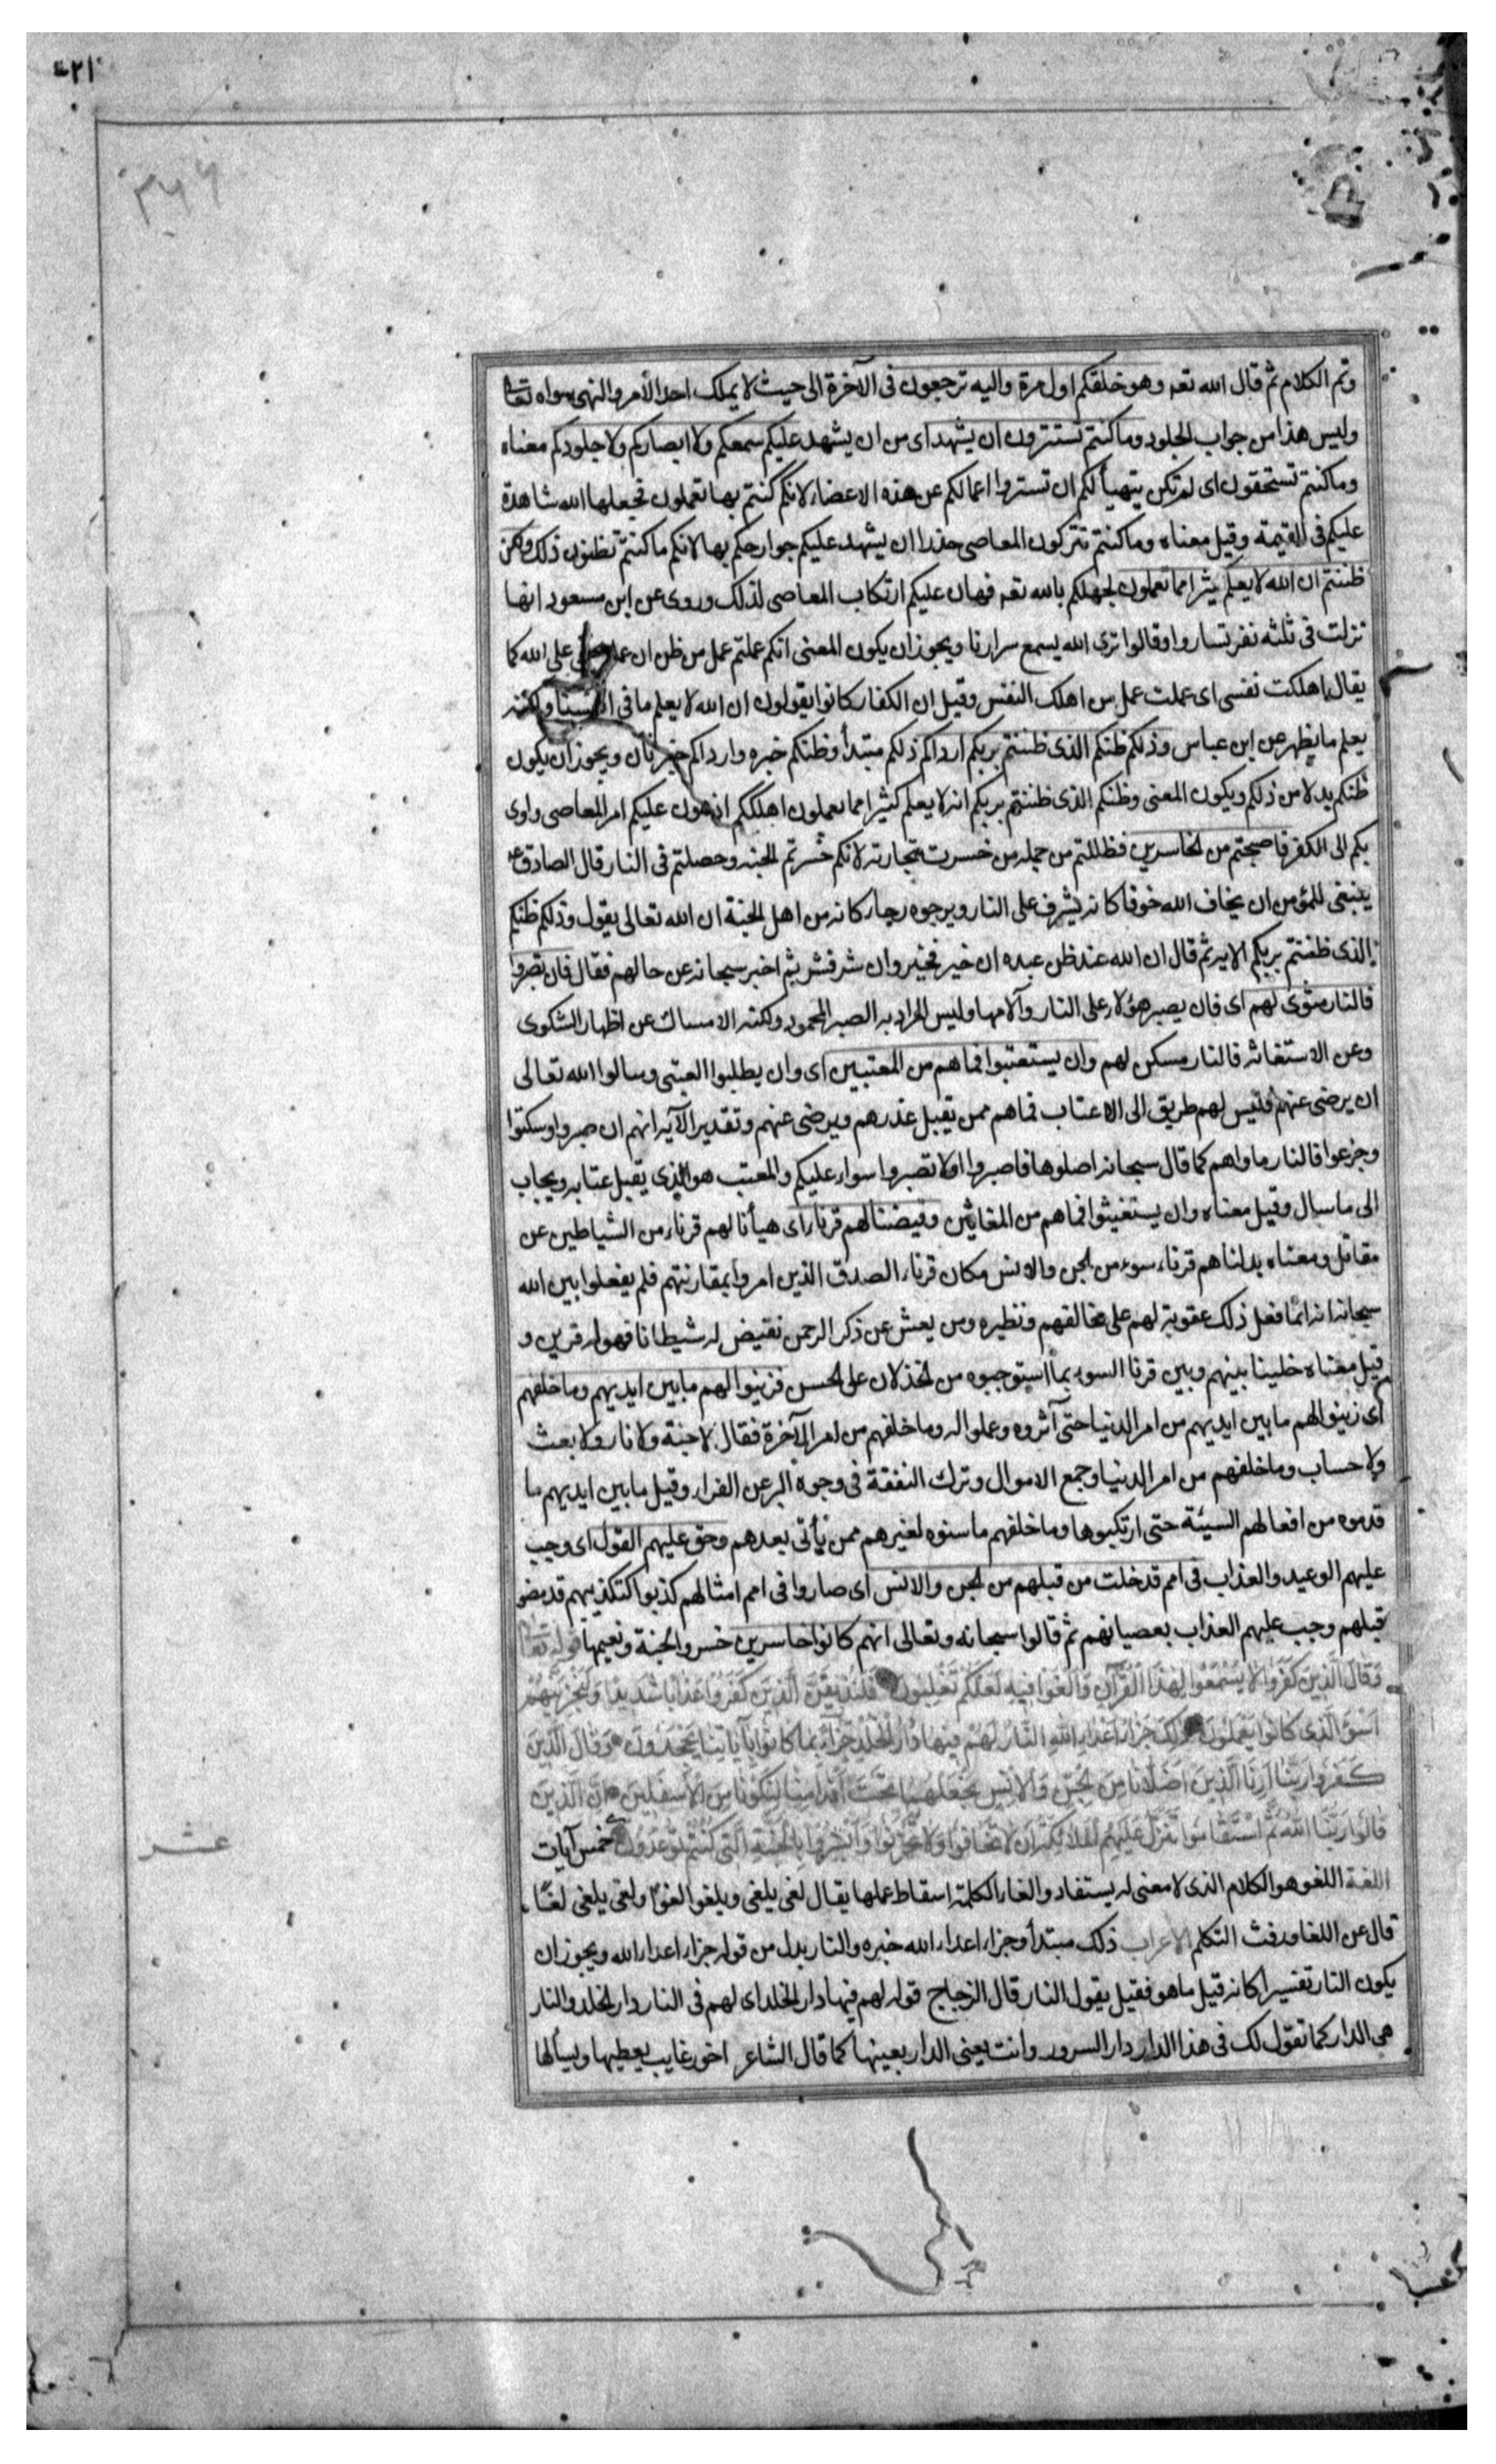 ٤٢١
٣٦٦
وتم الكلام ثم قال الله تعه وهو خلقكم اول مرة واليه ترجعون فى الآخرة الى حيث لا يملك احد الأمر والنهى سواه تعا
وليس هذا من جواب الجلود وما كنتم تستترون ان يشهد اى من ان يشهد عليكم سمعكم ولا ابصاركم ولا جلودكم معناه
وما كنتم تستخفون اى لم تكن يتهيأ لكم ان تستروا اعمالكم عن هذه الاعضاء لانكم كنتم بها تعملون فجعلها الله شاهدة
عليكم فى القيمة وقيل معناه وما كنتم تتركون المعاصى حذرا ان يشهد عليكم جوارحكم بها لانكم ما كنتم تظنون ذلك ولكن
ظننتم ان الله لا يعلم كثيرا مما تعملون لجهلكم بالله تعه فهان عليكم ارتكاب المعاصى لذلك وروى عن ابن مسعود انها
نزلت فى ثلثه نفر تساروا وقالوا ترى الله يسمع سرارنا ويجوز ان يكون المعنى انكم عملتم عمل من ظن ان عمله على الله كما
يقال اهلكت نفسى اى عملت عمل من اهلك النفس وقيل ان الكفار كانوا يقولون ان الله لا يعلم ما فى انفسنا ولكنه
يعلم ما يظهر عن ابن عباس وذلكم ظنكم الذى ظننتم بربكم ارداكم ذلكم مبتدأ وظنكم خبره وارداكم خبر ثان ويجوز ان يكون
ظنكم بدلا من ذلكم ويكون المعنى وظنكم الذى ظننتم بربكم انه لا يعلم كثيرا مما تعملون اهلككم اذ هون عليكم امر المعاصى وادى
بكم الى الكفر فاصبحتم من الخاسرين فظللتم من جمله من خسرت تجارته لانكم خسرتم الجنه وحصلتم فى النار قال الصادق ع
ينبغى للمؤمن ان يخاف الله خوفا كانه يشرف على النار ويرجوه رجاء كانه من اهل الجنة ان الله تعالى يقول وذلكم ظنكم
الذى ظننتم بربكم الايه ثم قال ان الله عند ظن عبده ان خير فخير وان شر فشر ثم اخبر سبحانه عن حالهم فقال فان يصبروا
فالنار مثوى لهم اى فان يصبر هؤلاء على النار وآلامها وليس المراد به الصبر المحمود ولكنه الامساك عن اظهار الشكوى
وعن الاستغاثه فالنار مسكن لهم وان يستعتبوا فما هم من المعتبين اى وان يطلبوا العتبى وسالوا الله تعالى
ان يرضى عنهم فليس لهم طريق الى الاعتاب فما هم ممن تقبل عذرهم ويرضى عنهم وتقدير الآيه انهم ان صبروا وسكتوا
وجزعوا فالنار ماواهم كما قال سبحانه اصلوها فاصبروا اولا تصبروا سواء عليكم والمعتب هو الذى يقبل عتابه ويجاب
الى ما سال وقيل معناه وان يستغيثوا فما هم من المغاثين وقيضنا لهم قرناء اى هيأنا لهم قرناء من الشياطين عن
مقاتل ومعناه بدلناهم قرناء سوء من الجن والانس مكان قرناء الصدق الذين امروا بمقارنتهم فلم يفعلوا بين الله
سبحانه انه انما فعل ذلك عقوبة لهم على مخالفتهم ونظيره ومن يعش عن ذكر الرحمن نقيض له شيطانا فهو له قرين و
قيل معناه خلينا بينهم وبين قرنا السوء بما استوجبوه من الخذلان على الحسن فزينوا لهم ما بين ايديهم وما خلفهم
اى زينوا لهم ما بين ايديهم من امر الدنيا حتى آثروه وعملوا له وما خلفهم من امر الآخرة فقال لا جنة ولا نار ولا بعث
ولا حساب وما خلفهم من امر الدنيا وجمع الاموال وترك النفقة فى وجوه البر عن الفراء وقيل ما بين ايديهم ما
قدموه من افعالهم السيئة حتى ارتكبوها وما خلفهم ما سنوه لغيرهم ممن يأتى بعدهم وحق عليهم القول اى وجب
عليهم الوعيد والعذاب فى امم قد خلت من قبلهم من الجن والانس اى صاروا فى امم امثالهم كذبوا كتكذيبهم قد مضوا
قبلهم وجب عليهم العذاب بعصيانهم ثم قالوا سبحانه وتعالى انهم كانوا خاسرين خسروا الجنة ونعيمها قوله تعا
وَقَالَ الَّذِينَ كَفَرُوا لا تَسْمَعُوا لِهٰذَا الْقُرْآنِ وَالْغَوْا فِيهِ لَعَلَّكُمْ تَغْلِبُونَ فَلَنُذِيقَنَّ الَّذِينَ كَفَرُوا عَذَابًا شَدِيدًا وَلَنَجْزِيَنَّهُمْ
اَسْوَأَ الَّذِى كَانُوا يَعْمَلُونَ ذٰلِكَ جَزَاءُ اَعْدَاءِ اللهِ النَّارُ لَهُمْ فِيهَا دَارُ الْخُلْدِ جَزَاءً بِمَا كَانُوا بِآيَاتِنَا يَجْحَدُونَ وَقَالَ الَّذِينَ
كَفَرُوا رَبَّنَا اَرِنَا الَّذَيْنِ اَضَلَّانَا مِنَ الْجِنِّ وَالاِنْسِ نَجْعَلْهُمَا تَحْتَ اَقْدَامِنَا لِيَكُونَا مِنَ الْاَسْفَلِينَ اِنَّ الَّذِينَ
قَالُوا رَبُّنَا اللهُ ثُمَّ اسْتَقَامُوا تَتَنَزَّلُ عَلَيْهِمُ الْمَلَائِكَةُ اَنْ لَا تَخَافُوا وَلَا تَحْزَنُوا وَاَبْشِرُوا بِالْجَنَّةِ الَّتِى كُنْتُمْ تُوعَدُونَ خمس آيات
عشر
اللغة اللغو هو الكلام الذى لا معنى له يستفاد والغاء الكلمة اسقاط عملها يقال لغى يلغى ويلغو لغوًا ولغى يلغى لغًا
قال عن اللغا ورفث التكلم الاعراب ذلك مبتدأ وجزاء اعداء الله خبره والنار بدل من قوله جزاء اعداء الله ويجوز ان
يكون النار تفسيرا كانه قيل ما هو فقيل يقول النار قال الزجاج قوله لهم فيها دار الخلد اى لهم فى النار دار الخلد والنار
هى الدار كما تقول لك فى هذا الدار دار السرور وانت يعنى الدار بعينها كما قال الشاعر اخو رغايب يعطيها ويسألها